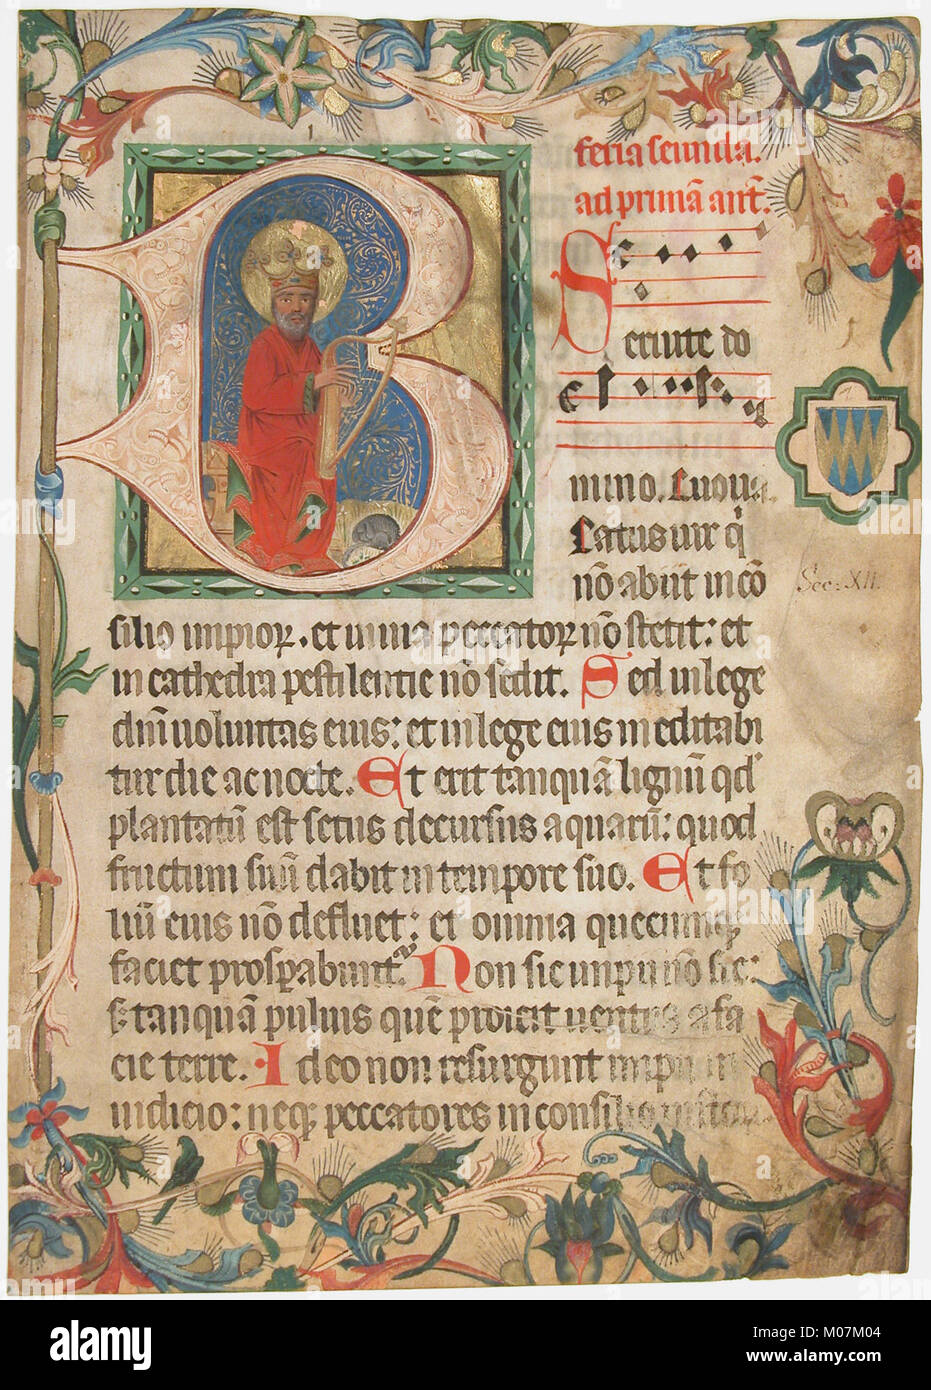 1
feria secunda.
ad primā ant̄.
Seruite do
mino. Euoua.
Beatus uir q̇
nō abiit in cō
silio impioꝝ. et in uia peccatoꝝ nō stetit: et
in cathedra pestilentie nō sedit. Sed in lege
dn̄i uoluntas eius: et in lege eius meditabi
tur die ac nocte. Et erit tanquā lignū qd̕
plantatū est secus decursus aquarū: quod
fructum suū dabit in tempore suo. Et fo
liū eius nō defluet: et omnia quecumqꝫ
faciet prosꝑabunt᷑. Non sic impii nō sic:
s; tanquā puluis quē proicit uentus a fa
cie terre. Ideo non resurgunt impii in
iudicio: neqꝫ peccatores in consilio
Sec: XII.
alamy
alamy stock photo
M07M04
www.alamy.com